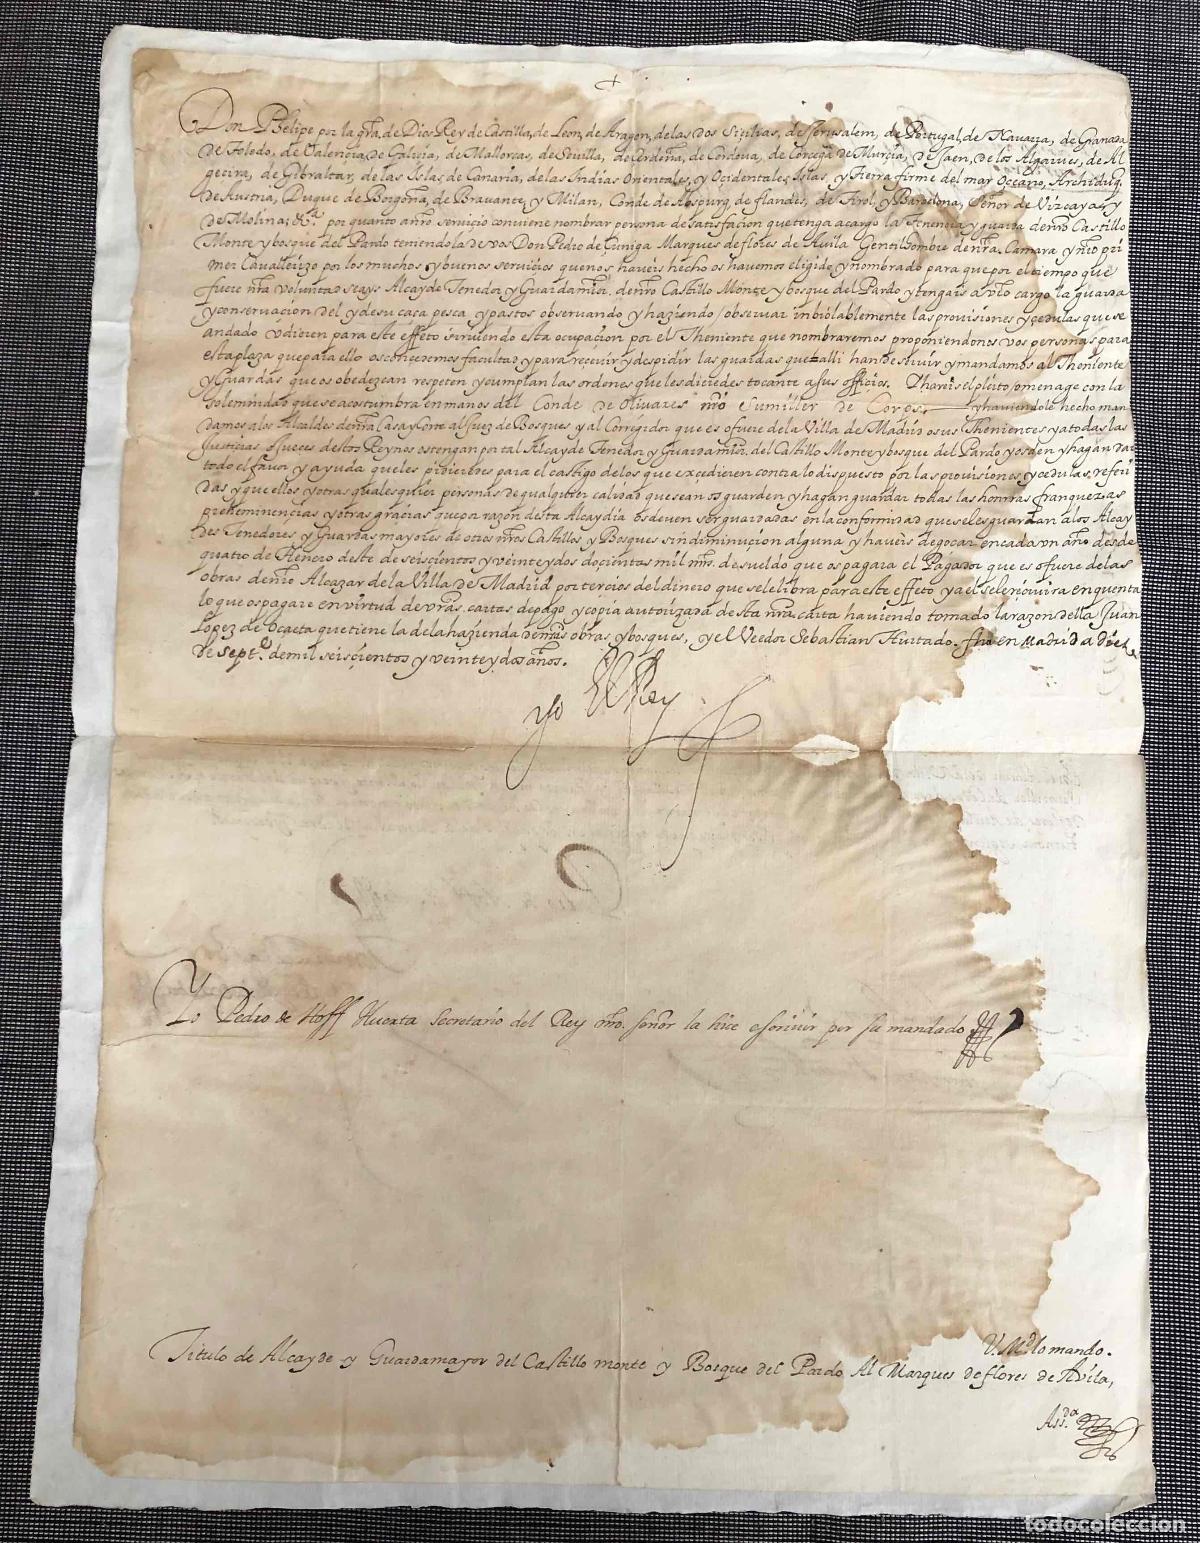 Don Phelipe por la gra. de Dios Rey de Castilla, de Leon, de Aragon, de las dos Sicilias, de Jerusalem, de Portugal, de Navarra, de Granada
de Toledo, de Valencia, de Galicia, de Mallorcas, de Sevilla, de Cerdeña, de Cordova, de Corcega, de Murcia, de Jaen, de los Algarves, de Al
gecira, de Gibraltar, de las Islas de Canaria, de las Indias Orientales, y Ocidentales, Islas, y Tierra firme del mar Oceano, Archiduq.
de Austria, Duque de Borgoña, de Bravante, y Milan, Conde de Abspurg, de flandes, de Tirol, y Barcelona, Señor de Vizcaya, y
de Molina; &ª. por quanto a nro servicio conviene nombrar persona de satisfacion que tenga a cargo la Tenencia y guarda de nro Castillo
Monte y bosque del Pardo teniendola de vos Don Pedro de Çuniga Marques de flores de Avila Gentilhombre de nra. Camara y nro pri
mer Cavallerizo por los muchos, y buenos servicios que nos haveis hecho os havemos eligido y nombrado para que por el tiempo que
fuere nra voluntad seays Alcayde Tenedor y Guardamaior. de nro Castillo Monte y bosque del Pardo y tengais a vro cargo la guarda
y conservacion del y de su caça pesca y pastos observando y haziendo observar inbiolablemente las provisiones y cedulas que se
an dado y dieren para este effeto sirviendo esta ocupacion por el Theniente que nombraremos proponiendonos vos personas para
esta plaza que para ello os concedemos facultad y para recevir y despidir las guardas que alli han de servir y mandamos al Theniente
y Guardas que os obedezcan respeten y cumplan las ordenes que les dieredes tocante a sus officios. Y hareis el pleito omenage con la
solemnidad que se acostumbra en manos del Conde de Olivares nro Sumiller de Corps. y haviendole hecho man
damos a los Alcaldes de nra Casa y Corte al Juez de Bosques y al Corregidor que es o fuere de la Villa de Madrid o sus Thenientes y a todas las
Justicias y Jueces destos Reynos os tengan por tal Alcayde Tenedor y Guardamaior. del Castillo Monte y bosque del Pardo y os den y hagan dar
todo el favor y ayuda que les pidieredes para el castigo de los que excedieren contra lo dispuesto por las provisiones y cedulas referi
das y que ellos y otras qualesquier personas de qualquier calidad que sean os guarden y hagan guardar todas las honrras franquezas
prehemminencias y otras gracias que por razon desta Alcaydia os deven ser guardadas en la conformidad que se les guardan a los Alcay
des Tenedores y Guardas mayores de otros nros Castillos y Bosques sin deminucion alguna y haveis de goçar en cada un año desde
quatro de Henero deste de seiscientos y veinte y dos docientas mil mrs. de sueldo que os pagara el Pagador que es o fuere de las
obras de nro Alcazar de la Villa de Madrid por tercios del dinero que se le libra para este effeto y a el se le recivira en quenta
lo que os pagare en virtud de vras. cartas de pago y copia autorizada desta nra carta haviendo tomado la razon della Juan
Lopez de Ocaeta que tiene la de la hazienda de nras obras y bosques, y el Veedor Sebastian Hurtado. fha en Madrid a diez
de septe. de mil seiscientos y veinte y dos años.
yo El Rey
Yo Pedro de Hoff Huerta Secretario del Rey nro. señor la hice escrivir por su mandado
V. Md. lo mando.
Titulo de Alcayde y Guardamayor del Castillo monte y Bosque del Pardo Al Marques de flores de Avila,
Assda.
todocoleccion